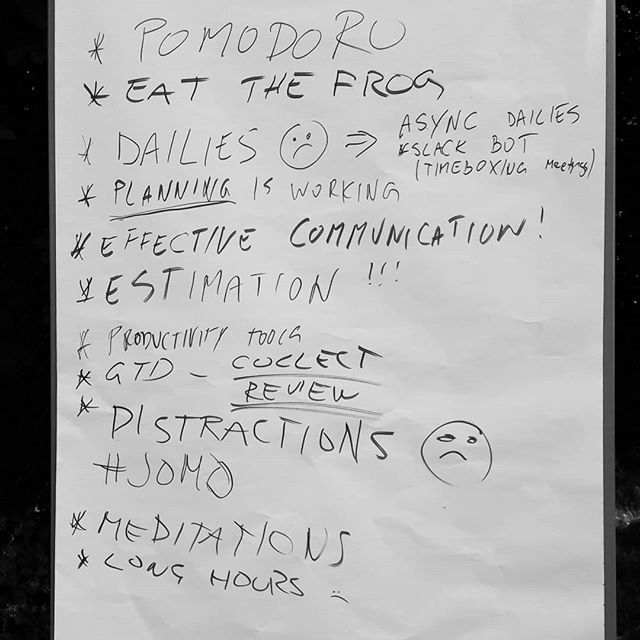 * POMODORO
* EAT THE FROG
* DAILIES ☹ => ASYNC DAILIES
*SLACK BOT
(TIMEBOXING Meetings)
* PLANNING IS WORKING
* EFFECTIVE COMMUNICATION!
* ESTIMATION !!!
* PRODUCTIVITY TOOLS
* GTD - COLLECT
REVIEW
* DISTRACTIONS
#JOMO
* MEDITATIONS
* LONG HOURS :(